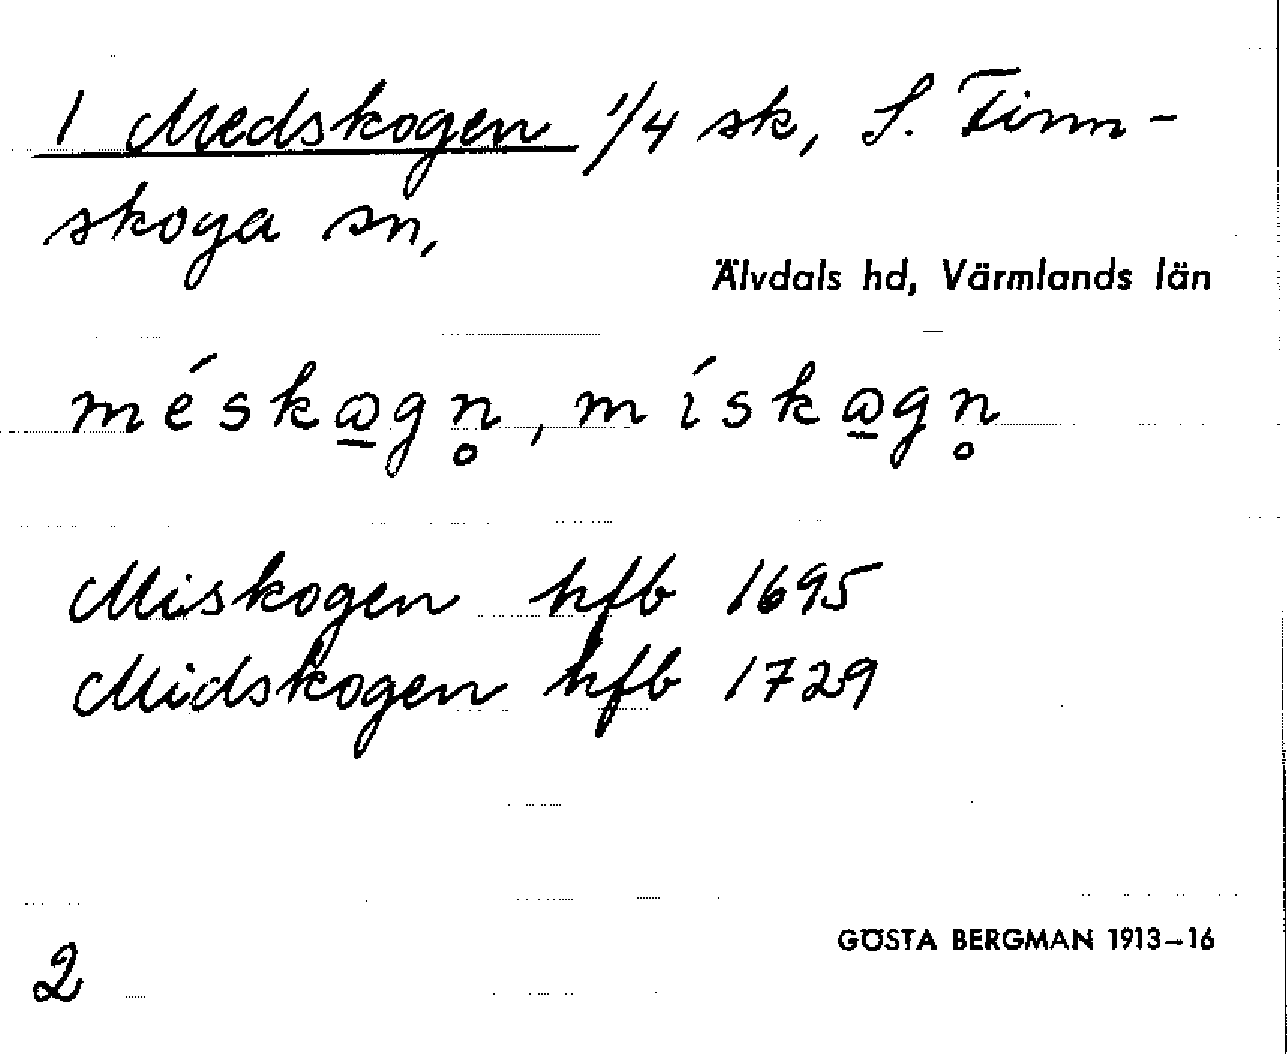 1 Medskogen 1/4 sk, S. Finn-
skoga sn,
Älvdals hd, Värmlands län
méskω̲gn̥, mískω̲gn̥
Miskogen hfb 1695
Midskogen hfb 1729
GÖSTA BERGMAN 1913–16
2